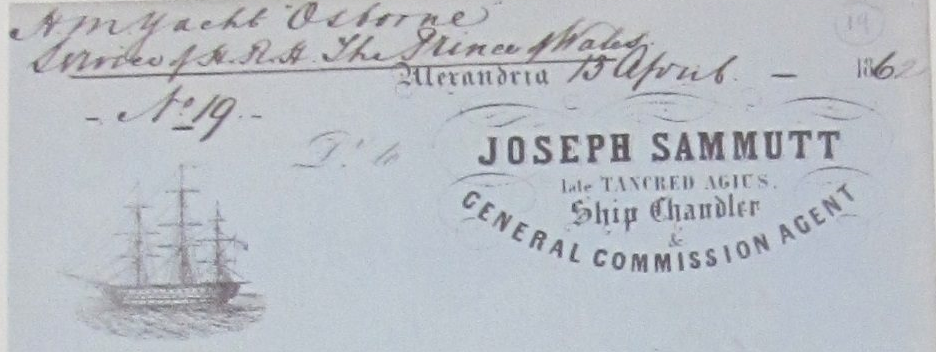 H M Yacht "Osborne"
Service of H.R.H. The Prince of Wales.
19
Alexandria 15 April. — 1862
- No 19. -
Dr. to
JOSEPH SAMMUTT
late TANCRED AGIUS.
Ship Chandler
&
GENERAL COMMISSION AGENT